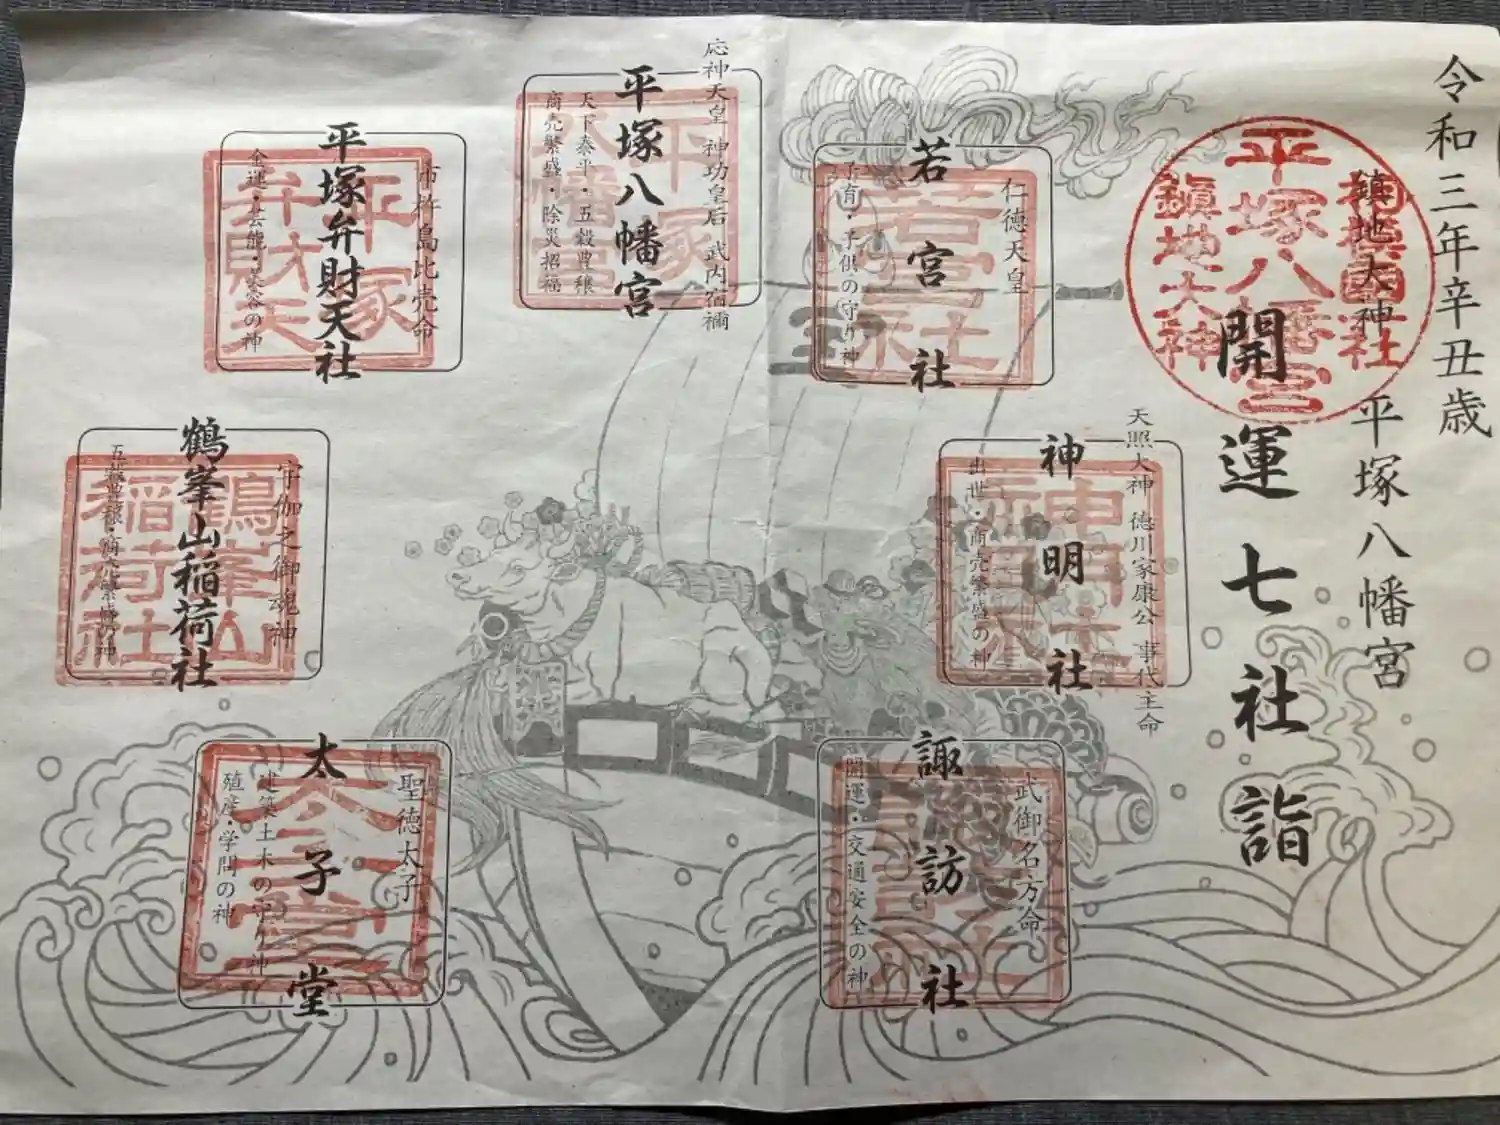 令和三年辛丑歳
平塚八幡宮
鎮地大神
開運七社詣
平塚八幡宮
鎮地大神
相模國一社
若宮社
仁徳天皇
子育・子供の守り神
若宮社
神明社
天照大神 徳川家康公 事代主命
出世・商売繁盛の神
神明社
諏訪社
武御名方命
開運・交通安全の神
諏訪社
平塚八幡宮
応神天皇 神功皇后 武内宿禰
天下泰斗・五穀豊穣
商売繁盛・除災招福
平塚八幡宮
平塚弁財天社
市杵島比売命
金運・芸能・美容の神
平塚弁財天
鶴峯山稲荷社
宇伽之御魂神
五穀豊穣・商売繁盛の神
鶴峯山稲荷社
太子堂
聖徳太子
建築土木の守り神
殖産・学問の神
太子堂